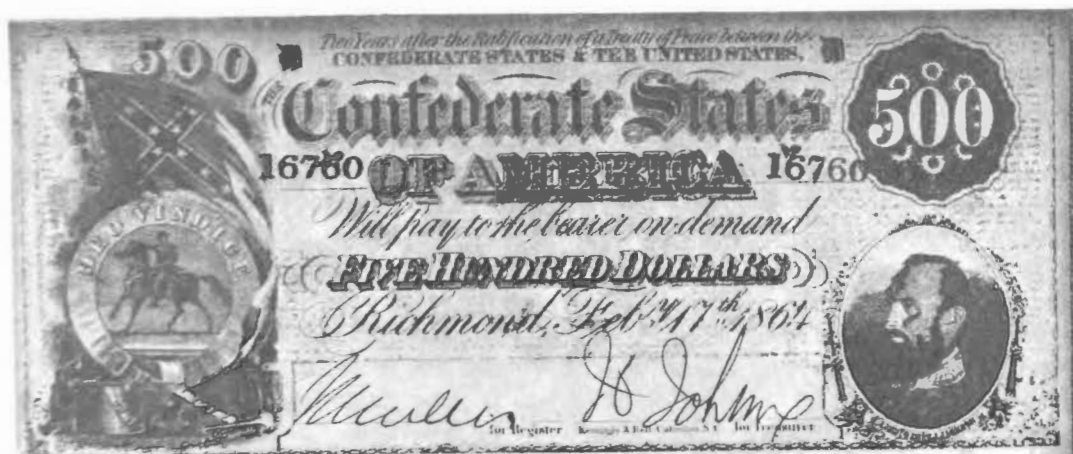 500
Two Years after the Ratification of a Treaty of Peace between the
CONFEDERATE STATES & THE UNITED STATES,
THE
Confederate States
500
16760 OF AMERICA 16760
Will pay to the bearer on demand
FIVE HUNDRED DOLLARS
Richmond, Feby. 17th 1864
VINDICE
for Register
for Treasurer